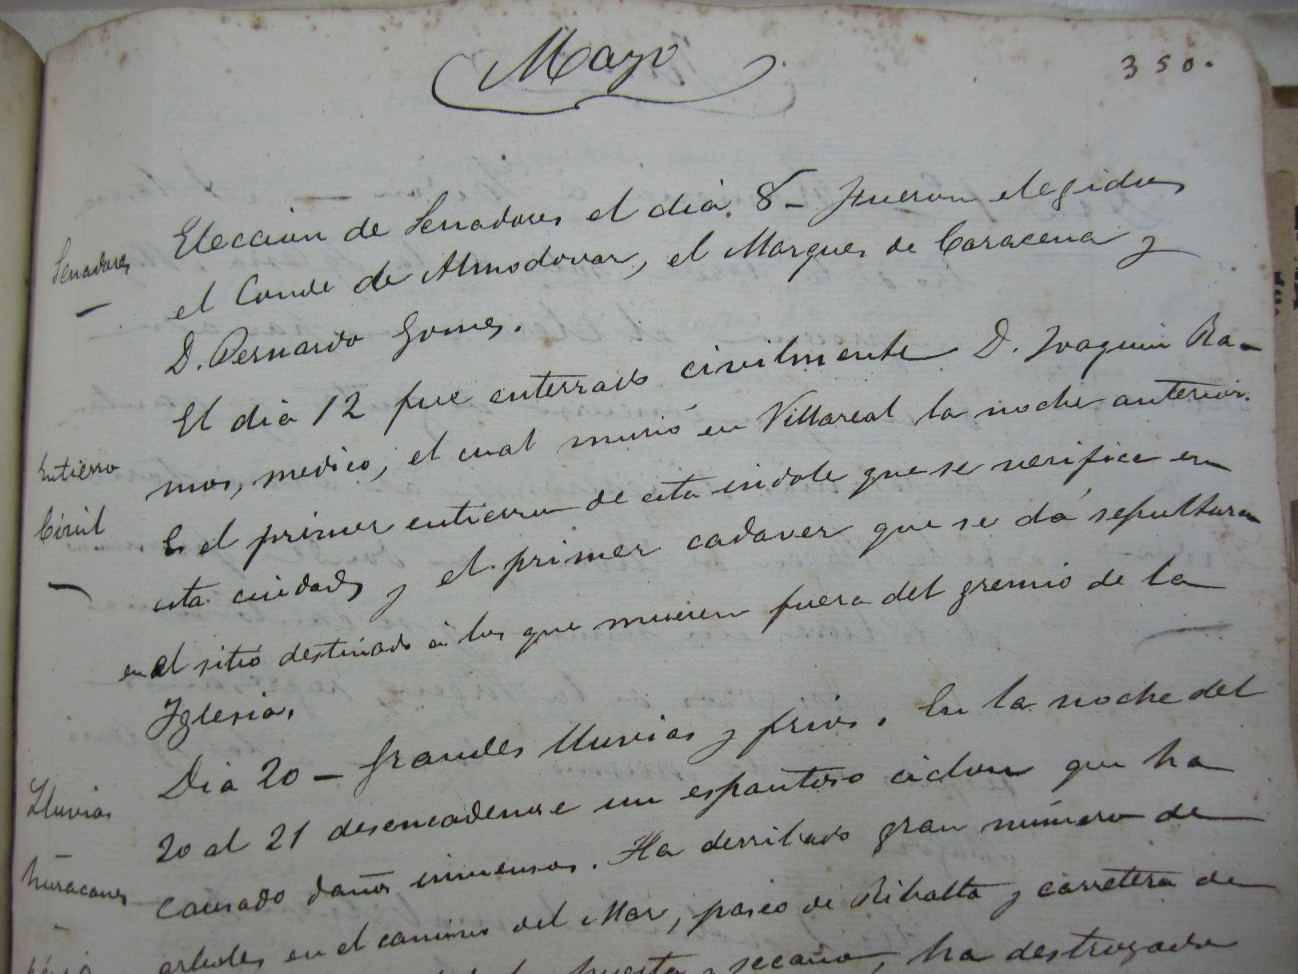 Mayo
350.
Senadores
Eleccion de Senadores el dia 8 - Fueron elegidos
el Conde de Almodovar, el Marques de Caracena y
D. Bernardo Gomes.
Entierro
Civil
El dia 12 fue enterrado civilmente D. Joaquin Ra-
mos, medico, el cual murió en Villareal la noche anterior.
Es el primer entierro de esta indole que se verifica en
esta ciudad, y el primer cadaver que se dá sepultura
en el sitio destinado á los que mueren fuera del gremio de la
Iglesia.
Lluvias
huracanes
Dia 20 - Grandes lluvias y frios. En la noche del
20 al 21 desencadenose un espantoso ciclon que ha
causado daños inmensos. Ha derribado gran número de
arboles en el camino del Mar, paseo de Ribalta y carretera de
huerta y secano, ha destrozado